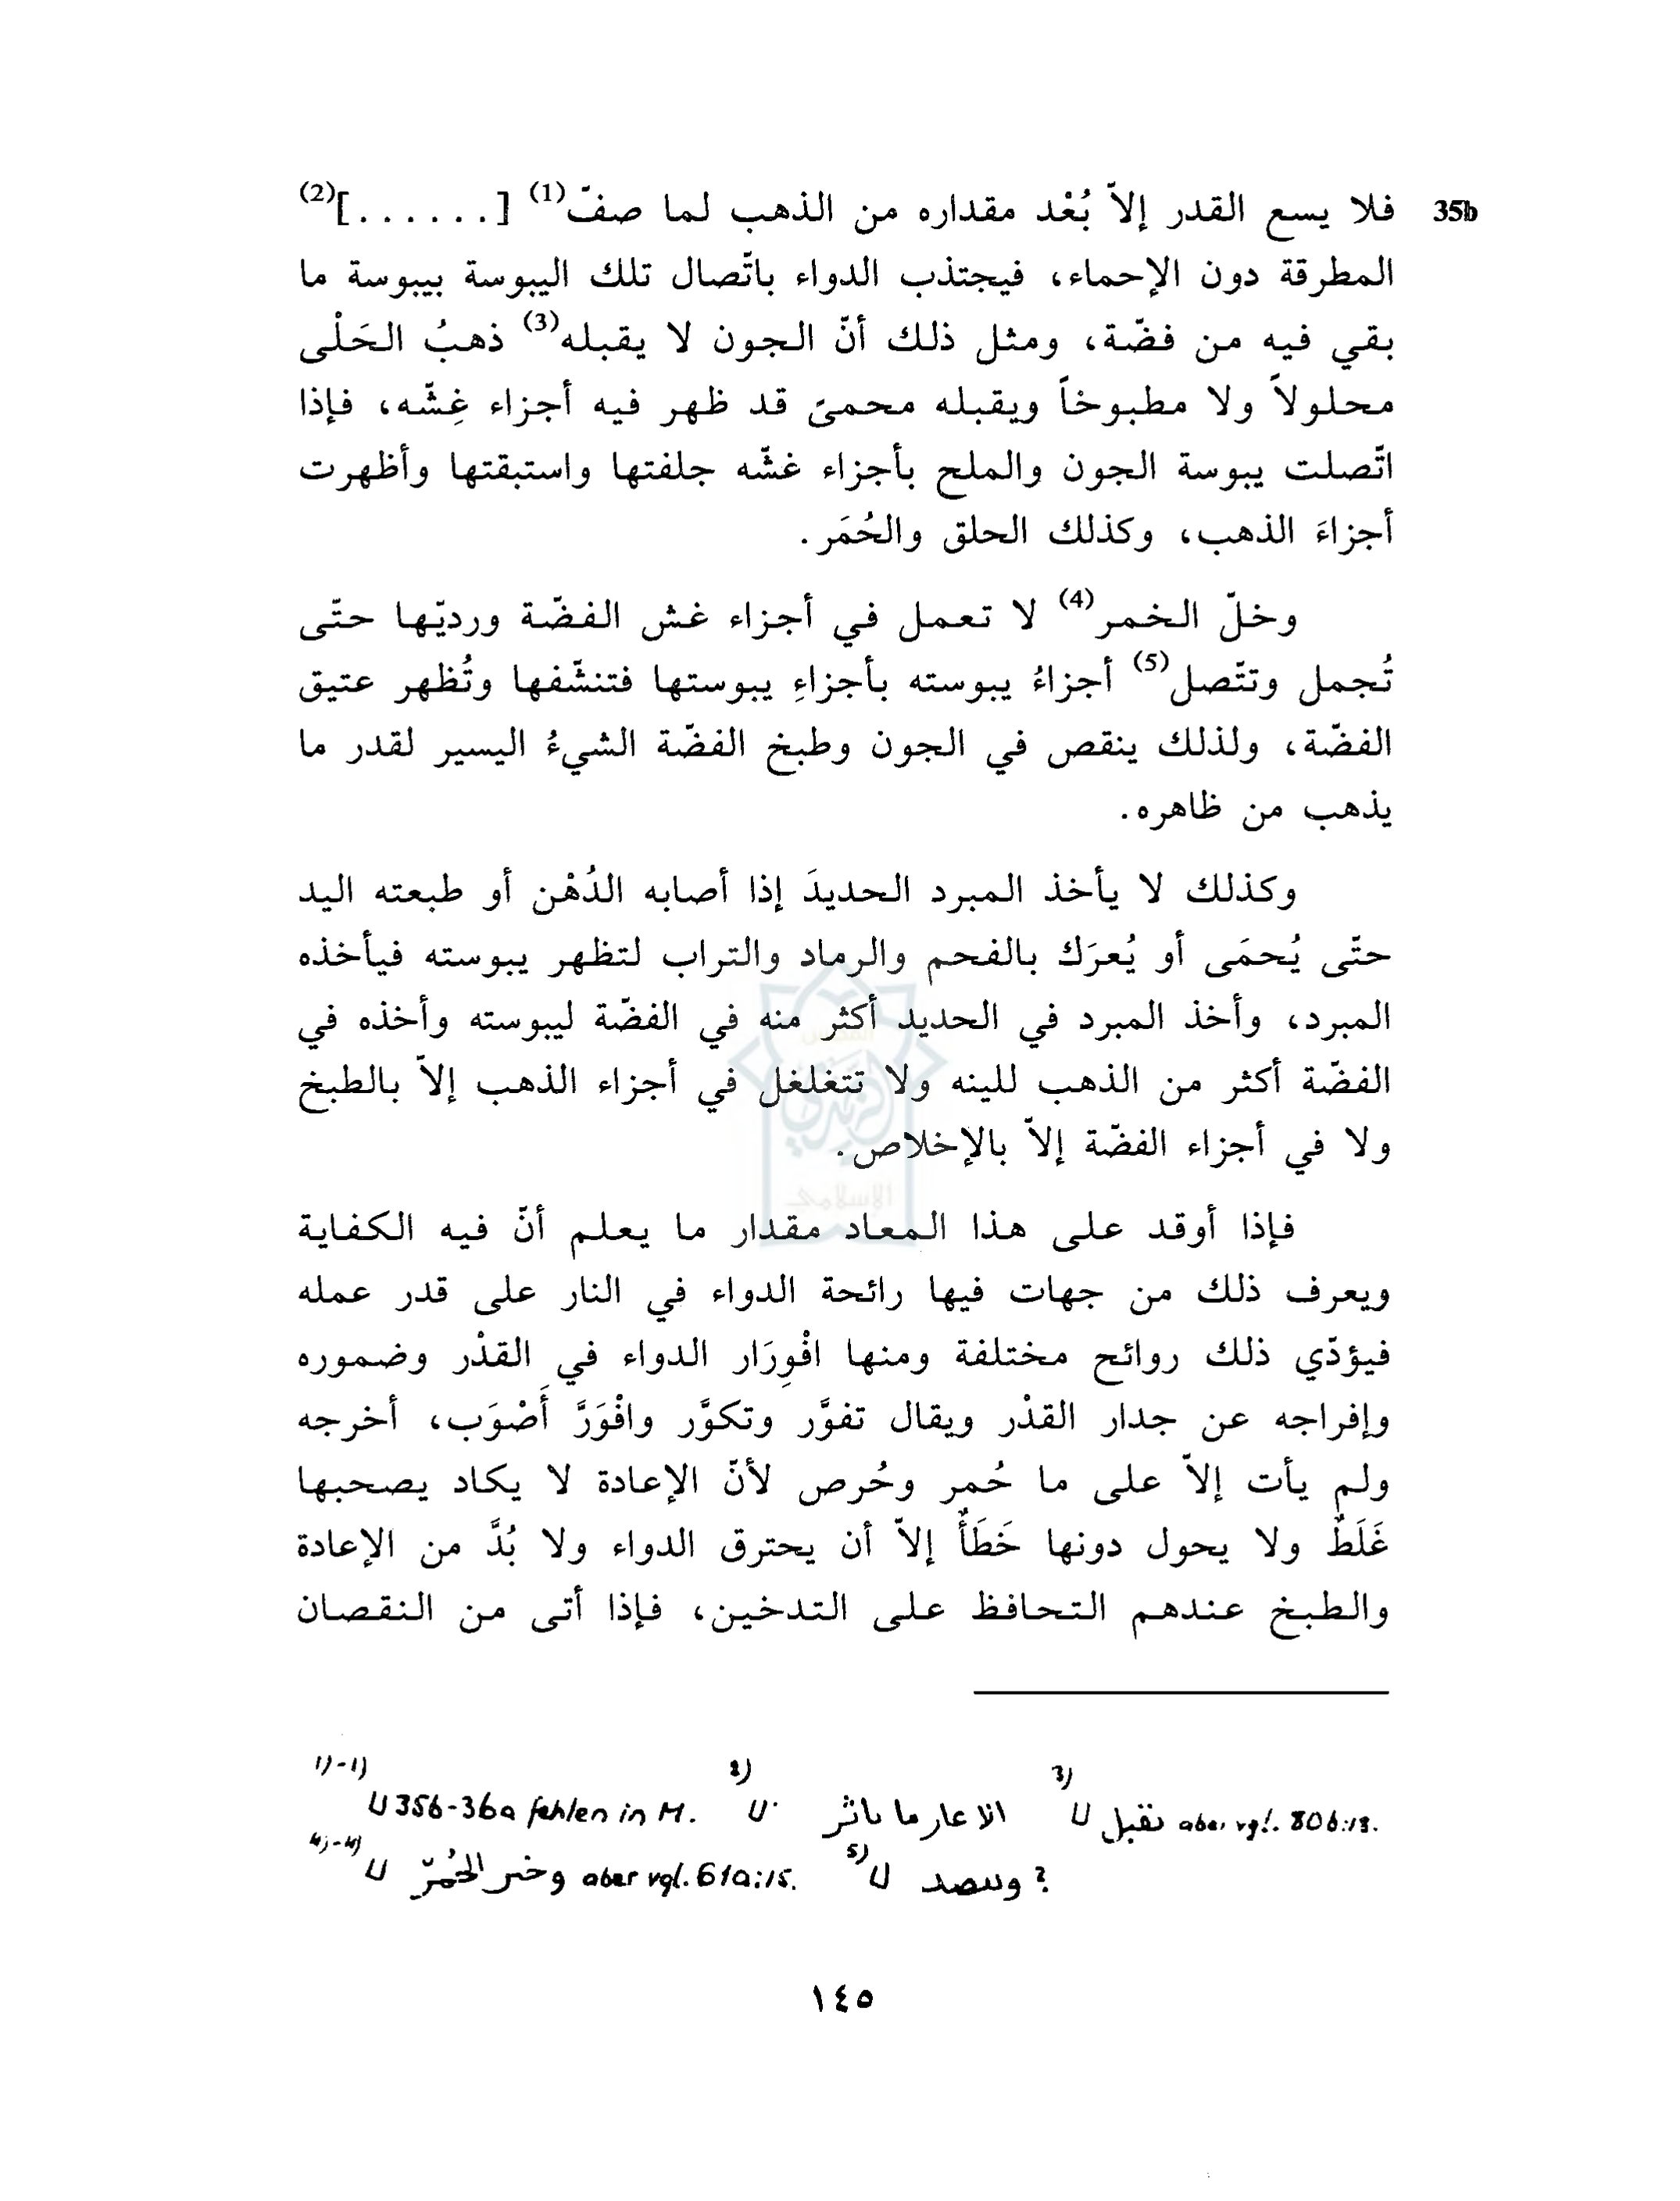 35b فلا يسع القدر إلاّ بُعْد مقداره من الذهب لما صفّ(1) [......](2)
المطرقة دون الإحماء، فيجتذب الدواء باتّصال تلك اليبوسة بيبوسة ما
بقي فيه من فضّة، ومثل ذلك أنّ الجون لا يقبله(3) ذهبُ الحَلْى
محلولاً ولا مطبوخاً ويقبله محمىً قد ظهر فيه أجزاء غِشّه، فإذا
اتّصلت يبوسة الجون والملح بأجزاء غشّه جلفتها واستبقتها وأظهرت
أجزاءَ الذهب، وكذلك الحلق والحُمَر.
وخلّ الخمر(4) لا تعمل في أجزاء غش الفضّة ورديّها حتّى
تُجمل وتتّصل(5) أجزاءُ يبوسته بأجزاءِ يبوستها فتنشّفها وتُظهر عتيق
الفضّة، ولذلك ينقص في الجون وطبخ الفضّة الشيءُ اليسير لقدر ما
يذهب من ظاهره.
وكذلك لا يأخذ المبرد الحديدَ إذا أصابه الدُهْن أو طبعته اليد
حتّى يُحمَى أو يُعرَك بالفحم والرماد والتراب لتظهر يبوسته فيأخذه
المبرد، وأخذ المبرد في الحديد أكثر منه في الفضّة ليبوسته وأخذه في
الفضّة أكثر من الذهب للينه ولا تتغلغل في أجزاء الذهب إلاّ بالطبخ
ولا في أجزاء الفضّة إلاّ بالإخلاص.
فإذا أوقد على هذا المعاد مقدار ما يعلم أنّ فيه الكفاية
ويعرف ذلك من جهات فيها رائحة الدواء في النار على قدر عمله
فيؤدّي ذلك روائح مختلفة ومنها افْوِرَار الدواء في القدْر وضموره
وإفراجه عن جدار القدْر ويقال تفوَّر وتكوَّر وافْوَرَّ أَصْوَب، أخرجه
ولم يأت إلاّ على ما حُمر وحُرص لأنّ الإعادة لا يكاد يصحبها
غَلَطٌ ولا يحول دونها خَطَأٌ إلاّ أن يحترق الدواء ولا بُدَّ من الإعادة
والطبخ عندهم التحافظ على التدخين، فإذا أتى من النقصان
1)-1) U 35b-36a fehlen in M. 2) U الا عار ما ىاثر 3) U تقبل aber vgl. 80b:13.
4)-4) U وخىر الخُمرّ aber vgl. 61a:15. 5) U وىىصد ?
١٤٥